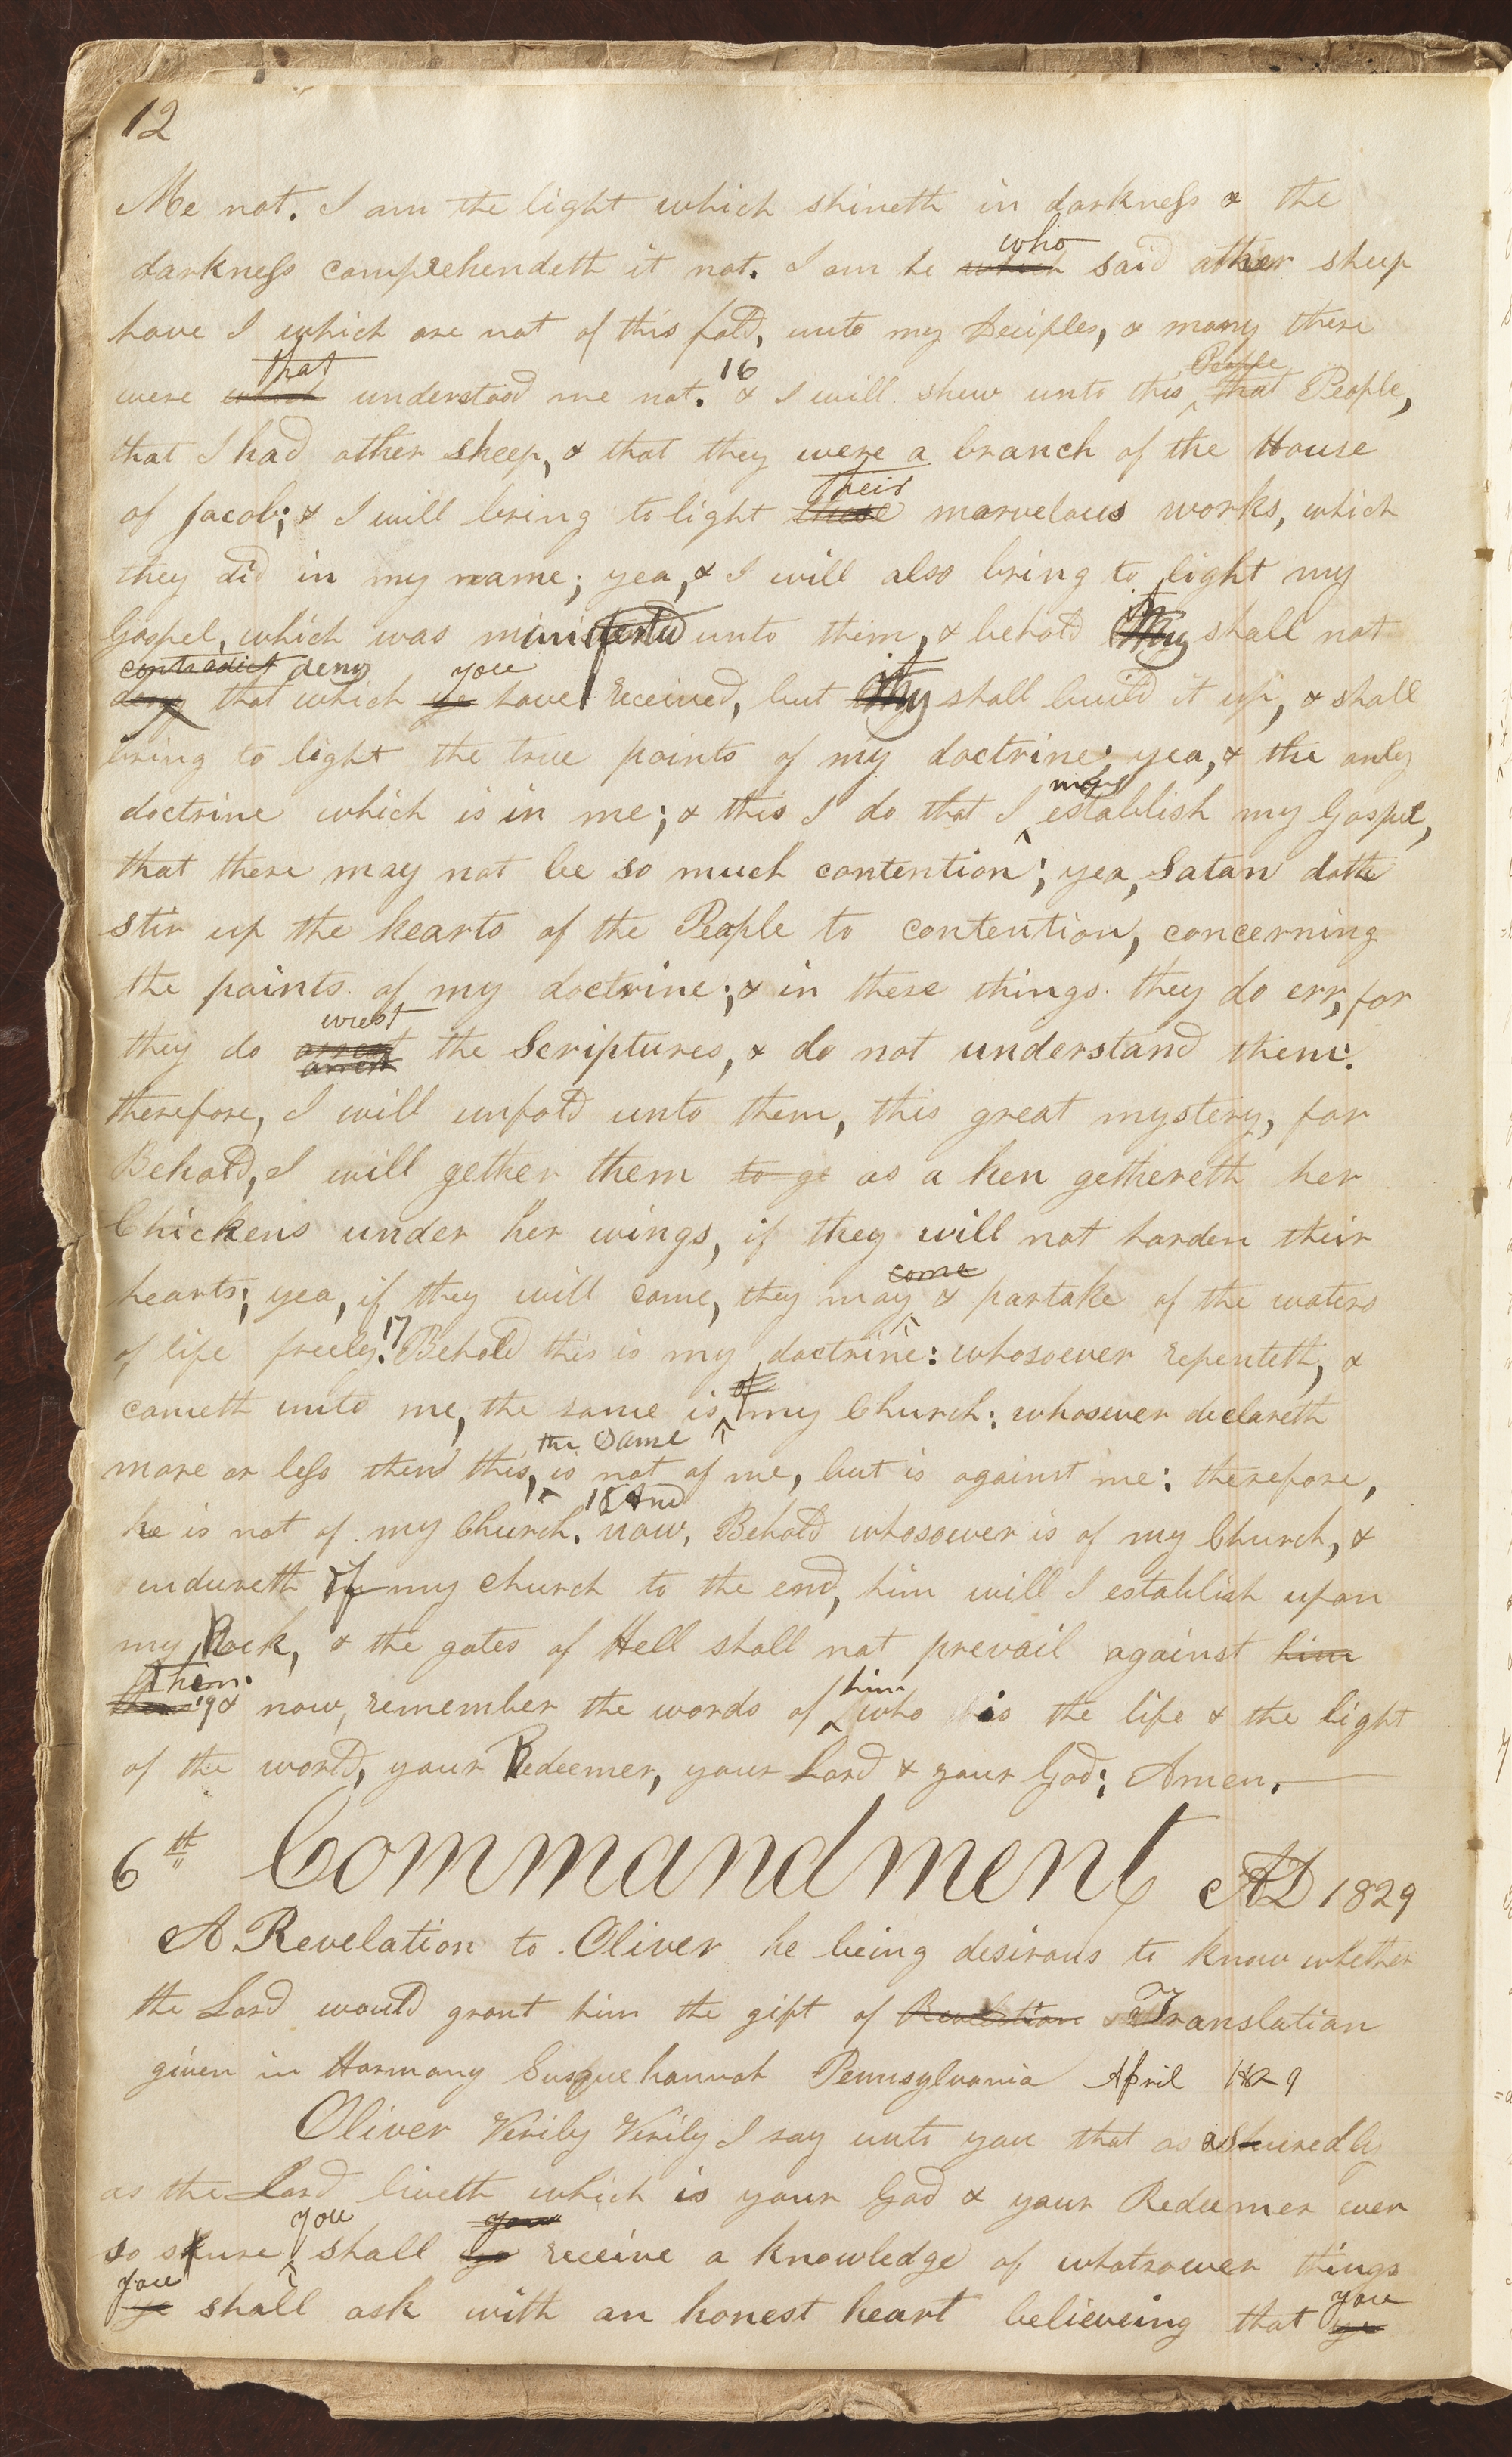 12
Me not. I am the light which shineth in darkness & the
who
darkness comprehendeth it not. I am he which said other sheep
have I which are not of this fold, unto my Deciples, & many there
that 16 People
were which understood me not. & I will shew unto this that People,
that I had other sheep, & that they were a branch of the House
their
of Jacob; & I will bring to light these marvelous works, which
they did in my name; yea, & I will also bring to light my
it
Gospel, which was ministered unto them, & behold they shall not
contradict deny you it
deny that which ye have received, but they shall build it up, & shall
bring to light the true points of my doctrine; yea, & the only
may
doctrine which is in me; & this I do that I establish my Gospel,
that there may not be so much contention; yea, Satan doth
stir up the hearts of the People to contention, concerning
the points of my doctrine; & in these things they do err, for
wrest
they do the Scriptures, & do not understand them.
therefore, I will unfold unto them, this great mystery, for
Behold, I will gether them to ge as a hen gethereth her
Chickens under her wings, if they will not harden their
come
hearts; yea, if they will come, they may & partake of the waters
17
of life freely. Behold this is my doctrine: whosoever repenteth, &
of
cometh unto me, the same is my Church: whosoever declareth
the same
more or less then this, is not of me, but is against me: therefore,
18 And
he is not of my Church. now, Behold whosoever is of my Church, &
endureth of my church to the end, him will I establish upon
my Rock, & the gates of Hell shall not prevail against him
them. him
them 19 & now, remember the words of who is the life & the light
of the world, your Redeemer, your Lord & your God; Amen.
6th Commandment AD 1829
A Revelation to Oliver he being desirous to know whether
the Lord would grant him the gift of Revelation & Translation
given in Harmony Susquehannah Pennsylvania April 1829
Oliver Verily Verily I say unto you that as ashuredly
as the Lord liveth which is your God & your Redeemer even
you you
so shure shall ye receive a knowledge of whatsoever things
you you
ye shall ask with an honest heart believeing that ye